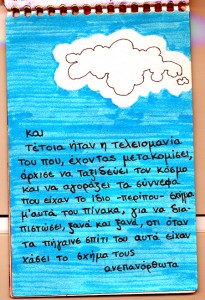 και
τέτοια ήταν η τελειομανία
του που, έχοντας μετακομίσει,
άρχισε να ταξιδεύει τον κόσμο
και να αγοράζει τα σύννεφα
που είχαν το ίδιο -περίπου- σχήμα
μ'αυτά του πίνακα, για να δια-
πιστώσει, ξανά και ξανά, ότι όταν
τα πήγαινε σπίτι του αυτά είχαν
χάσει το σχήμα τους
ανεπανόρθωτα